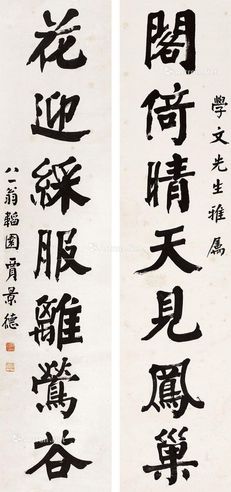 學文先生雅屬
閣倚晴天見鳳巢
花迎綵服離鶯谷
八一翁韜園賈景德